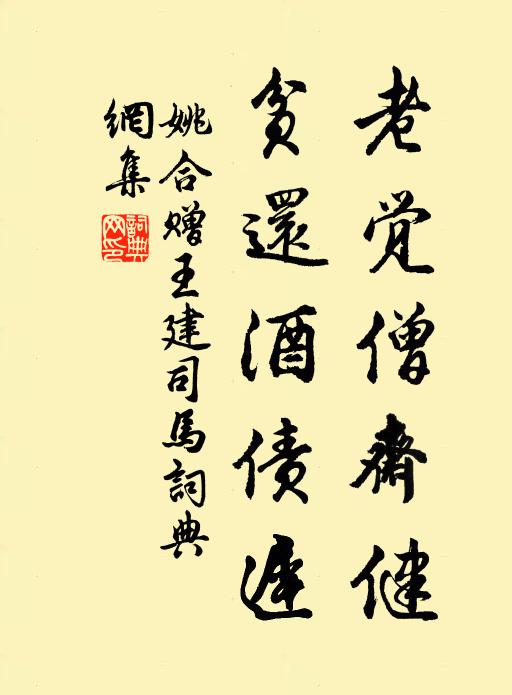 老覺僧齋健
貧還酒債遲
姚合贈王建司馬詞典
網集
詞典網印